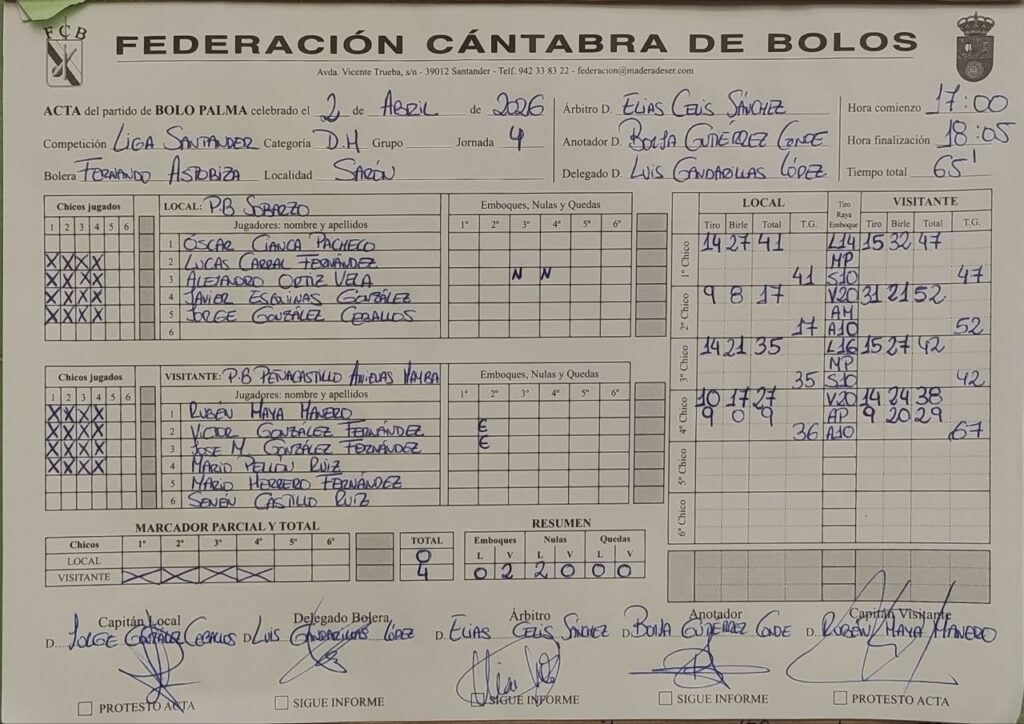 FCB
FEDERACIÓN CÁNTABRA DE BOLOS
Avda. Vicente Trueba, s/n - 39012 Santander - Telf. 942 33 83 22 - federacion@maderadeser.com
ACTA del partido de BOLO PALMA celebrado el 2 de ABRIL de 2026
Competición LIGA SANTANDER Categoría D.H Grupo Jornada 4
Bolera FERNANDO ASTOBIZA Localidad SARÓN
Árbitro D. ELIAS CELIS SÁNCHEZ
Anotador D. BORJA GUTIÉRREZ CONDE
Delegado D. LUIS GANDARILLAS LÓPEZ
Hora comienzo 17:00
Hora finalización 18:05
Tiempo total 65'
Chicos jugados
1 2 3 4 5 6
LOCAL: P.B SOBARZO
Jugadores: nombre y apellidos
Emboques, Nulas y Quedas
1º 2º 3º 4º 5º 6º
1 ÓSCAR CIANCA PACHECO
2 LUCAS CARRAL FERNÁNDEZ X X X X
3 ALEJANDRO ORTIZ VELA X X X X N N
4 JAVIER ESQUINAS GONZÁLEZ X X X X
5 JORGE GONZÁLEZ CEBALLOS X X X X
6
Chicos jugados
1 2 3 4 5 6
VISITANTE: P.B PEÑACASTILLO ANIEVAS MAYBA
Jugadores: nombre y apellidos
Emboques, Nulas y Quedas
1º 2º 3º 4º 5º 6º
1 RUBÉN HAYA MANERO X X X X
2 VICTOR GONZÁLEZ FERNÁNDEZ X X X X E
3 JOSE M. GONZÁLEZ FERNÁNDEZ X X X X E
4 MARIO PELLÓN RUIZ X X X X
5 MARIO HERRERO FERNÁNDEZ
6 SENÉN CASTILLO RUIZ
LOCAL Tiro Raya Emboque VISITANTE
Tiro Birle Total T.G. Tiro Birle Total T.G.
1º Chico 14 27 41 L14 15 32 47
MP
41 S10 47
2º Chico 9 8 17 V20 31 21 52
AM
17 A10 52
3º Chico 14 21 35 L16 15 27 42
MP
35 S10 42
4º Chico 10 17 27 V20 14 24 38
9 0 9 AP 9 20 29
36 A10 67
5º Chico
6º Chico
MARCADOR PARCIAL Y TOTAL
Chicos 1º 2º 3º 4º 5º 6º TOTAL
LOCAL 0
VISITANTE X X X X 4
RESUMEN
Emboques Nulas Quedas
L V L V L V
0 2 2 0 0 0
Capitán Local
D. JORGE GONZÁLEZ CEBALLOS
PROTESTO ACTA
Delegado Bolera
D. LUIS GANDARILLAS LÓPEZ
SIGUE INFORME
Árbitro
D. ELIAS CELIS SÁNCHEZ
SIGUE INFORME
Anotador
D. BORJA GUTIÉRREZ CONDE
SIGUE INFORME
Capitán Visitante
D. RUBÉN HAYA MANERO
PROTESTO ACTA